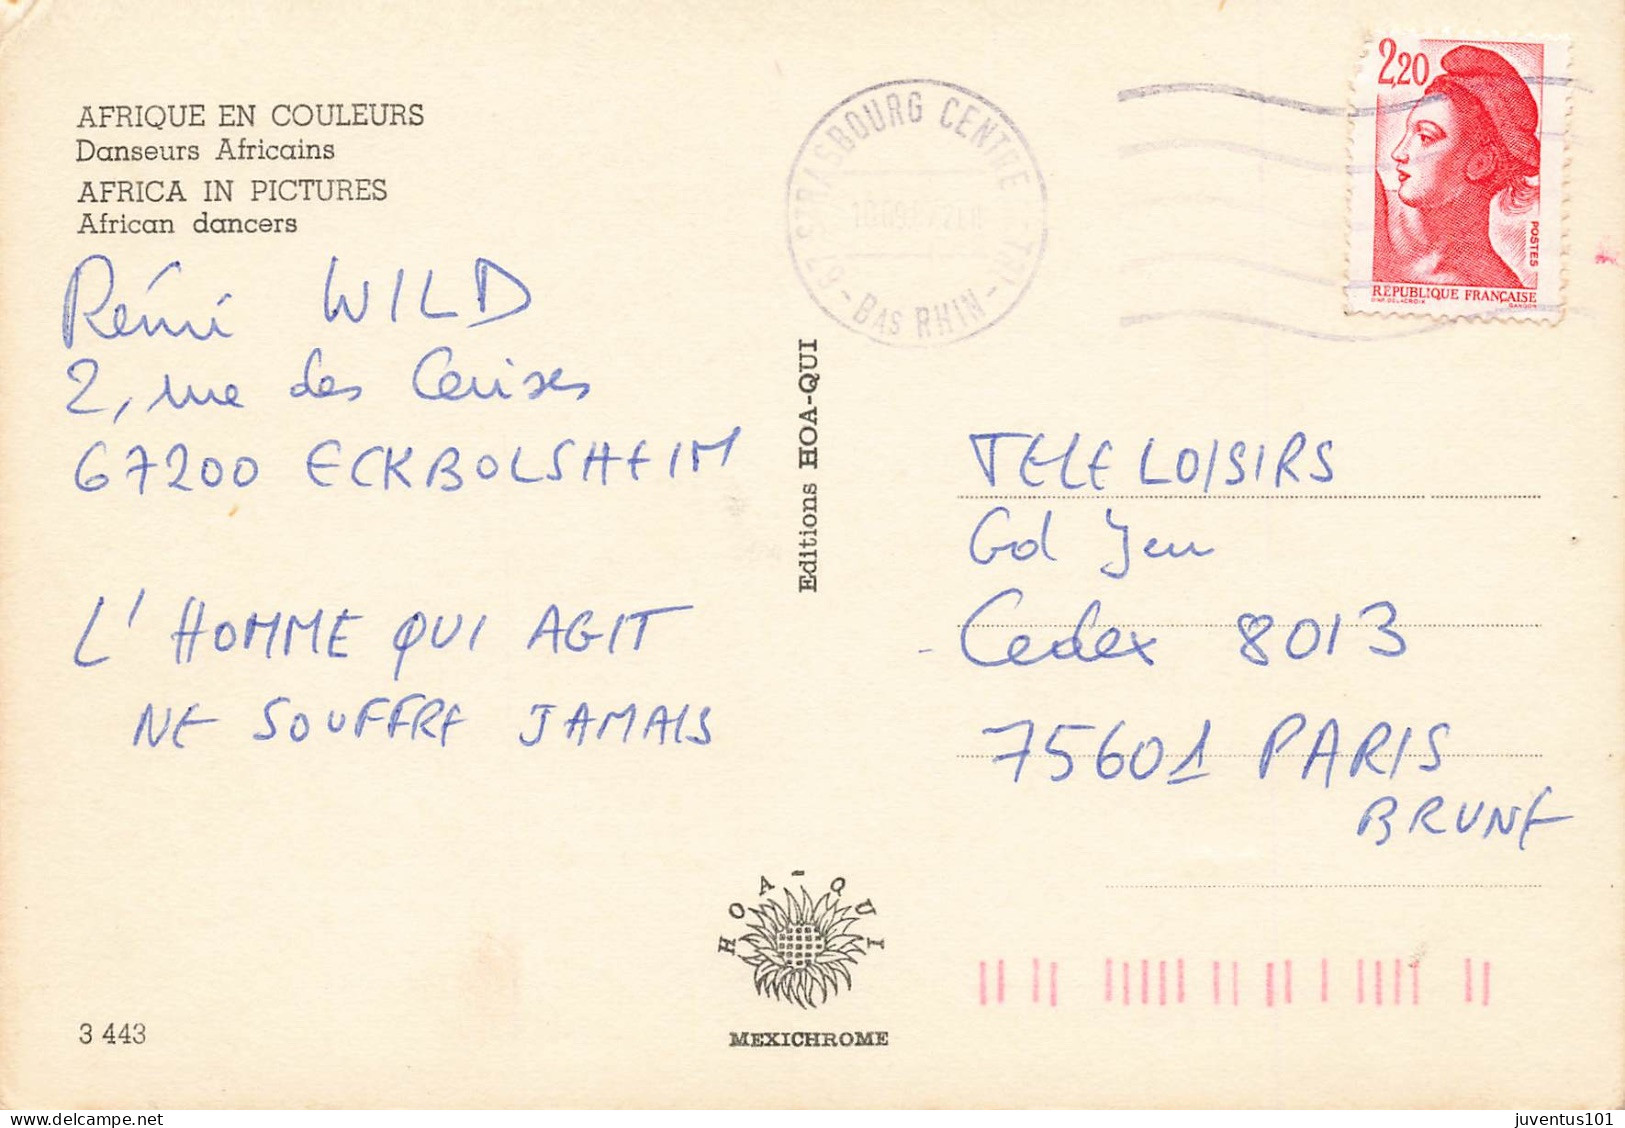 AFRIQUE EN COULEURS
Danseurs Africains
AFRICA IN PICTURES
African dancers
Rémi WILD
2, rue des Cerises
67200 ECKBOLSHEIM
L'HOMME QUI AGIT
NE SOUFFRE JAMAIS
3 443
Editions HOA-QUI
HOA-QUI
MEXICHROME
STRASBOURG CENTRE
67 - BAS RHIN -
2,20
POSTES
REPUBLIQUE FRANÇAISE
TELE LOISIRS
Gd Jeu
Cedex 8013
75601 PARIS
BRUNE
juventus101